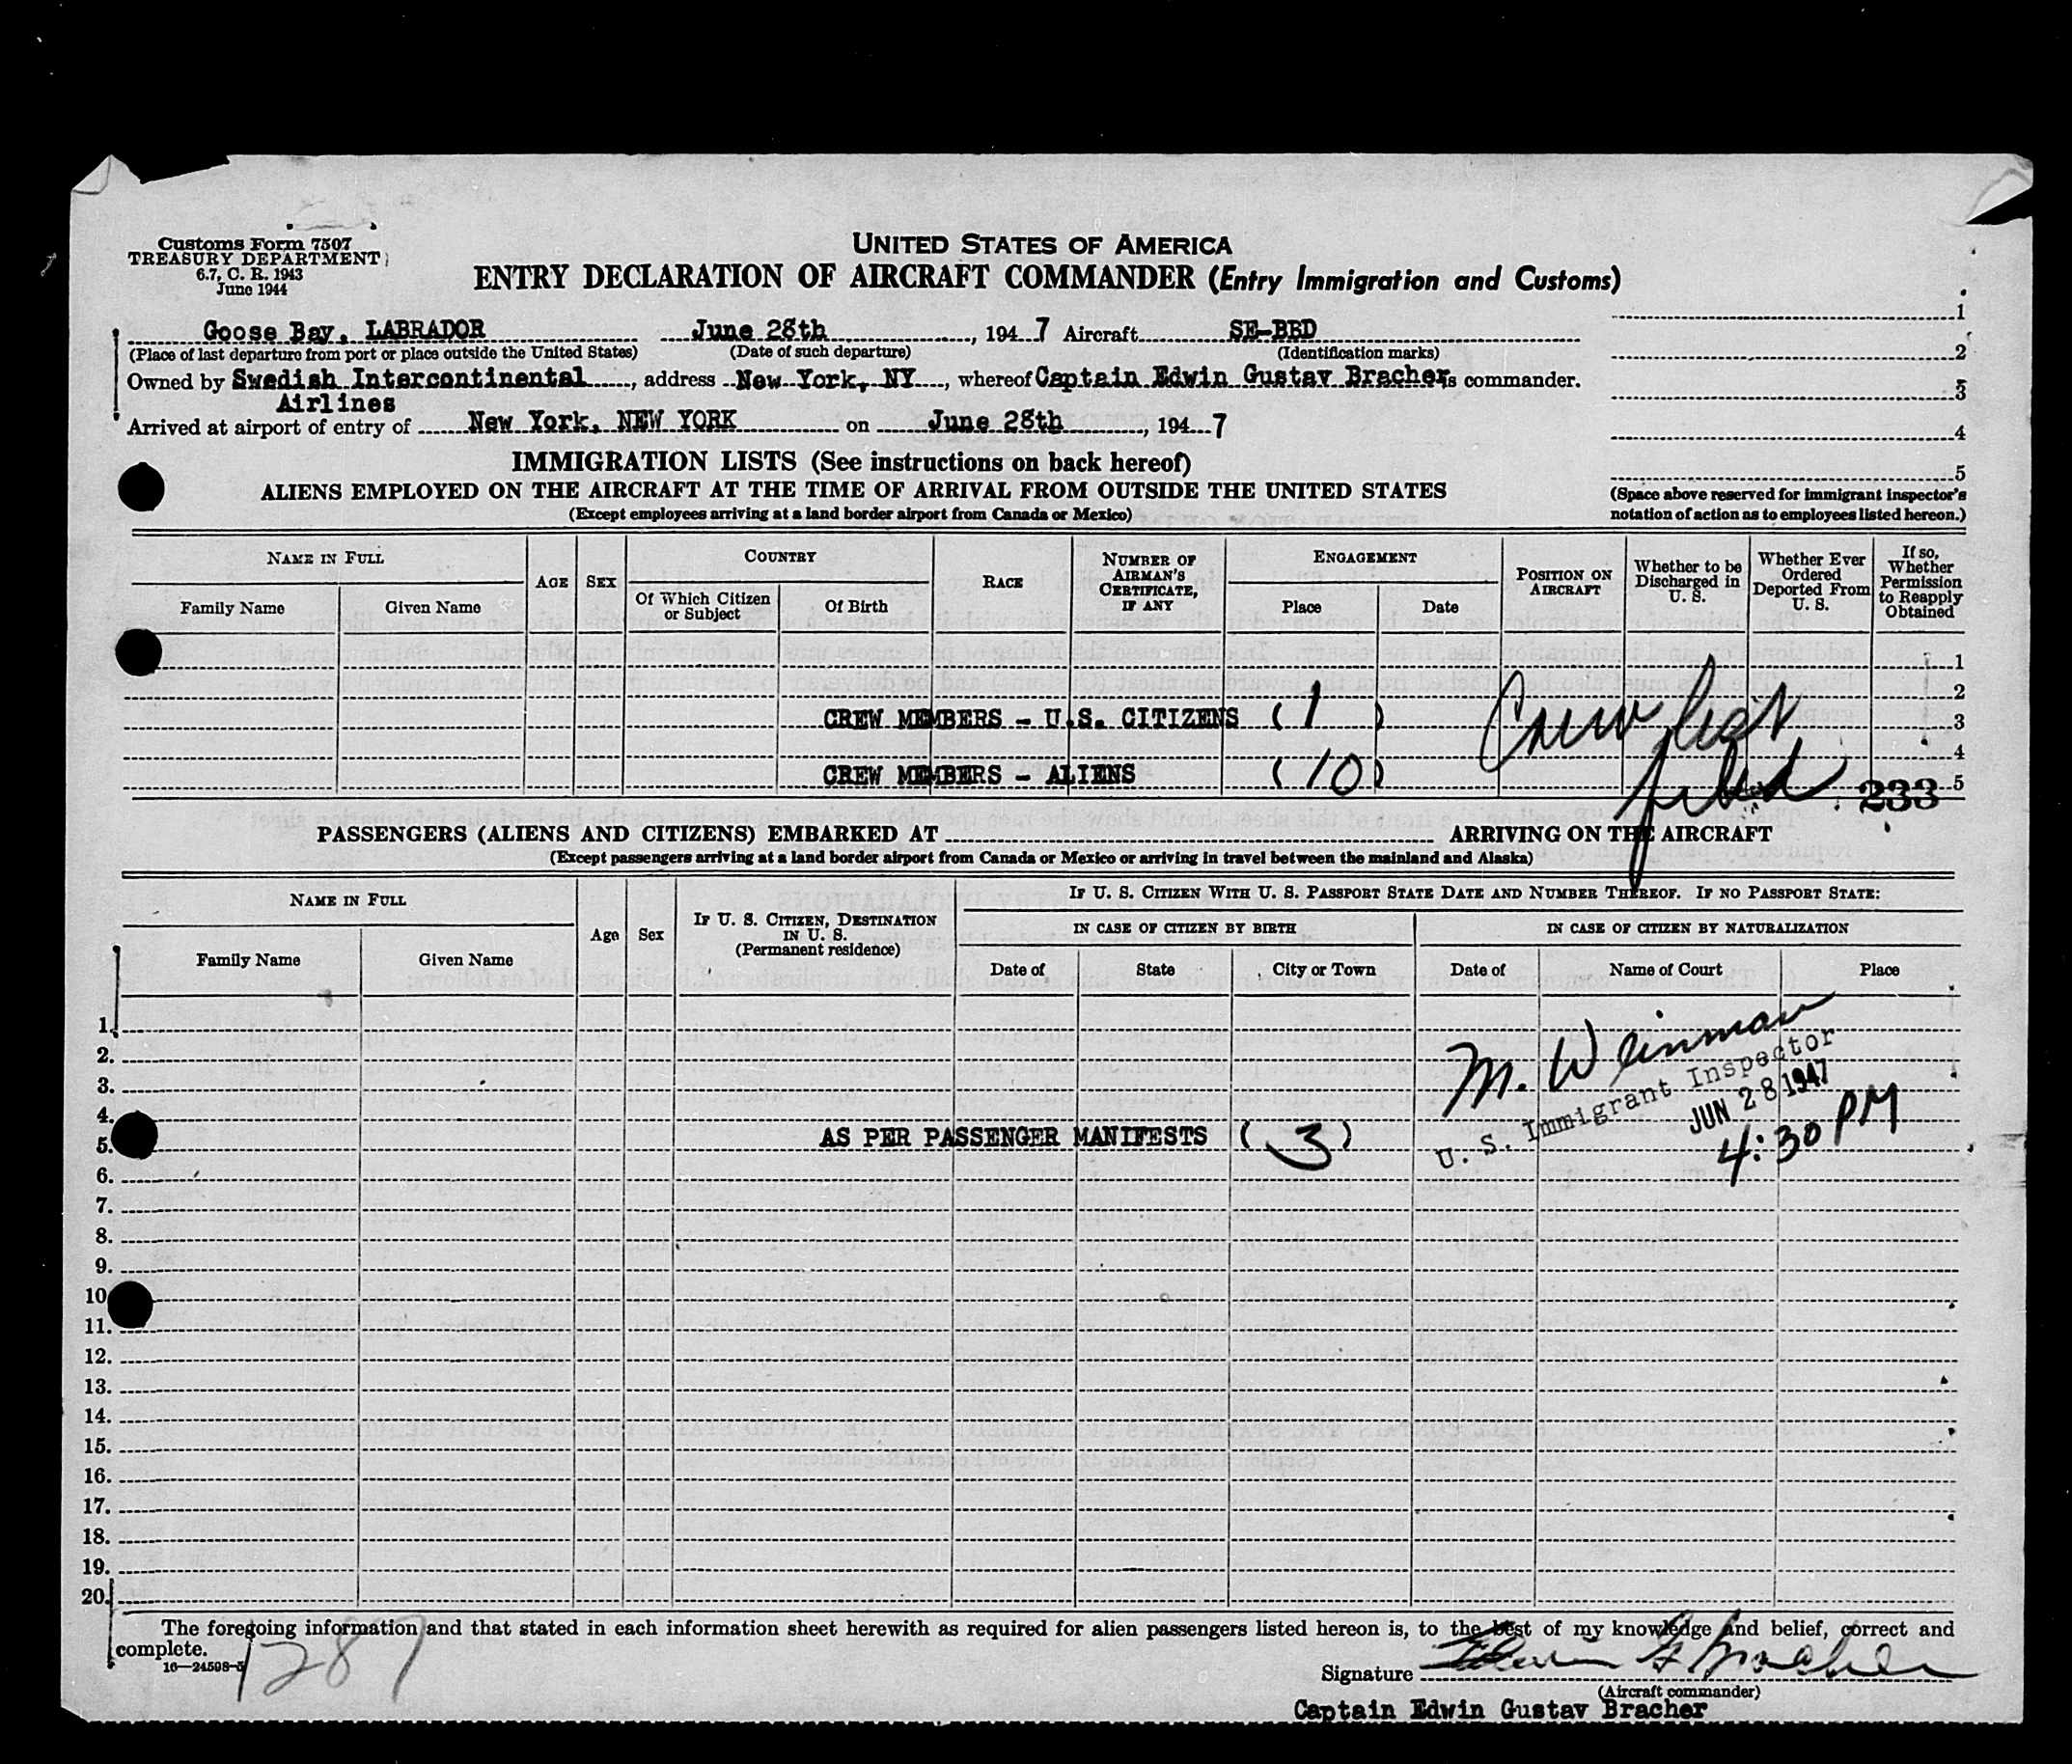 Customs Form 7507
TREASURY DEPARTMENT
6.7, C. R. 1943
June 1944
UNITED STATES OF AMERICA
ENTRY DECLARATION OF AIRCRAFT COMMANDER (Entry Immigration and Customs)
Goose Bay, LABRADOR June 28th, 1947 Aircraft SE-BBD
(Place of last departure from port or place outside the United States) (Date of such departure) (Identification marks)
Owned by Swedish Intercontinental, address New York, NY, whereof Captain Edwin Gustav Bracher is commander.
Airlines
Arrived at airport of entry of New York, NEW YORK on June 28th, 1947
1
2
3
4
5
(Space above reserved for immigrant inspector's
notation of action as to employees listed hereon.)
IMMIGRATION LISTS (See instructions on back hereof)
ALIENS EMPLOYED ON THE AIRCRAFT AT THE TIME OF ARRIVAL FROM OUTSIDE THE UNITED STATES
(Except employees arriving at a land border airport from Canada or Mexico)
NAME IN FULL
Family Name
Given Name
AGE
SEX
COUNTRY
Of Which Citizen
or Subject
Of Birth
RACE
NUMBER OF
AIRMAN'S
CERTIFICATE,
IF ANY
ENGAGEMENT
Place
Date
POSITION ON
AIRCRAFT
Whether to be
Discharged in
U. S.
Whether Ever
Ordered
Deported From
U. S.
If so,
Whether
Permission
to Reapply
Obtained
1
2
CREW MEMBERS - U.S. CITIZENS (1) 3
Crew list
4
CREW MEMBERS - ALIENS (10) 5
filed
233
PASSENGERS (ALIENS AND CITIZENS) EMBARKED AT ARRIVING ON THE AIRCRAFT
(Except passengers arriving at a land border airport from Canada or Mexico or arriving in travel between the mainland and Alaska)
NAME IN FULL
Family Name
Given Name
Age
Sex
IF U. S. CITIZEN, DESTINATION
IN U. S.
(Permanent residence)
IF U. S. CITIZEN WITH U. S. PASSPORT STATE DATE AND NUMBER THEREOF. IF NO PASSPORT STATE:
IN CASE OF CITIZEN BY BIRTH
IN CASE OF CITIZEN BY NATURALIZATION
Date of
State
City or Town
Date of
Name of Court
Place
1.
2.
3.
4.
5.
AS PER PASSENGER MANIFESTS (3)
M. Weinman
U. S. Immigrant Inspector
JUN 28 1947
4:30 PM
6.
7.
8.
9.
10
11.
12.
13.
14.
15.
16.
17.
18.
19.
20.
The foregoing information and that stated in each information sheet herewith as required for alien passengers listed hereon is, to the best of my knowledge and belief, correct and
complete.
16—24598-5
1287
Signature Edwin G Bracher
(Aircraft commander)
Captain Edwin Gustav Bracher